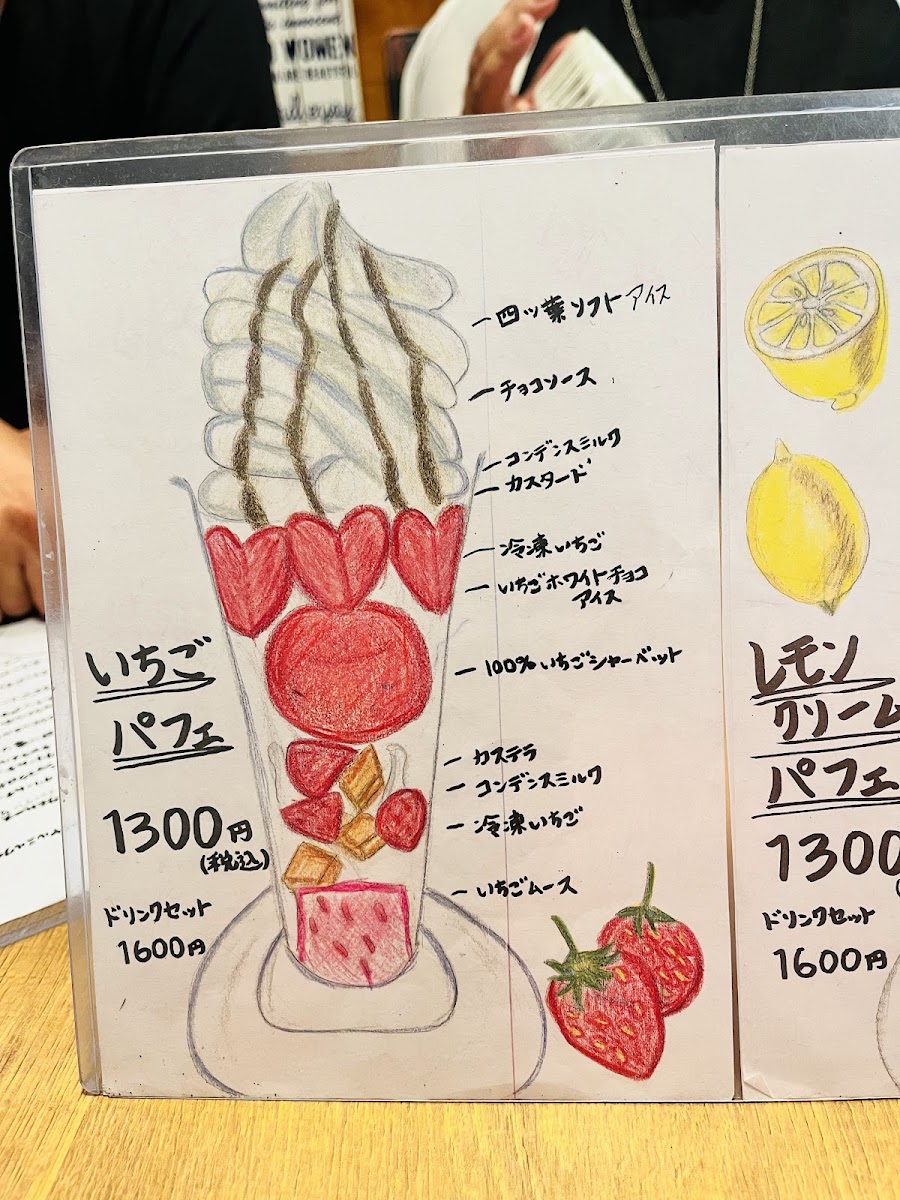 WOMEN
四ッ葉ソフトアイス
チョコソース
コンデンスミルク
カスタード
冷凍いちご
いちごホワイトチョコ
アイス
100%いちごシャーベット
カステラ
コンデンスミルク
冷凍いちご
いちごムース
いちご
パフェ
1300円
(税込)
ドリンクセット
1600円
レモン
クリーム
パフェ
1300
ドリンクセット
1600円